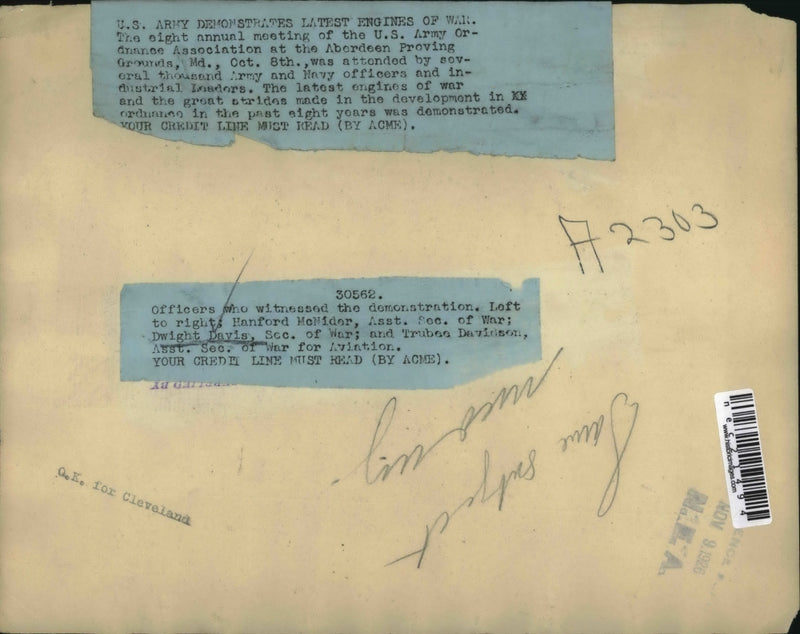 U.S. ARMY DEMONSTRATES LATEST ENGINES OF WAR.
The eight annual meeting of the U.S. Army Or-
dnance Association at the Aberdeen Proving
Grounds, Md., Oct. 8th.,was attended by sev-
eral thousand Army and Navy officers and in-
dustrial Leaders. The latest engines of war
and the great strides made in the development in XX
ordnance in the past eight years was demonstrated.
YOUR CREDIT LINE MUST READ (BY ACME).
A2303
30562.
Officers who witnessed the demonstration. Left
to right; Hanford McNider, Asst. Sec. of War;
Dwight Davis, Sec. of War; and Trubee Davidson,
Asst. Sec. of War for Aviation.
YOUR CREDIT LINE MUST READ (BY ACME).
Same subject
O.K. for Cleveland
www.historicimages.com
NOV 9 1926
N.E.A.